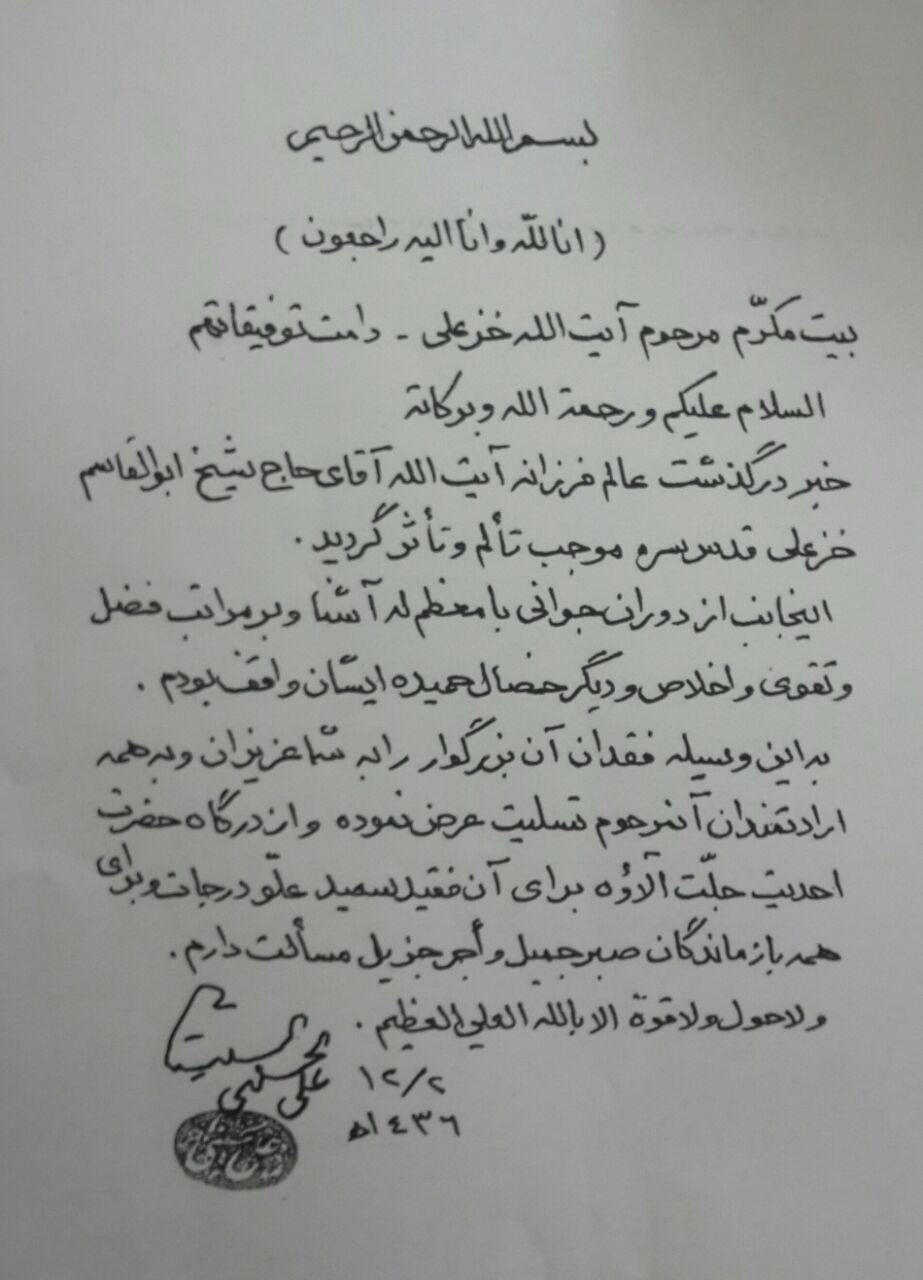 بسم الله الرحمن الرحیم
(انا للّه و انا الیه راجعون)
بیت مکرّم مرحوم آیت الله خزعلی - دامت توفیقاتهم
السلام علیکم و رحمة الله وبرکاته
خبر درگذشت عالم فرزانه آیت الله آقای حاج شیخ ابوالقاسم
خزعلی قدس سره موجب تألم و تأثر گردید.
اینجانب از دوران جوانی با معظم له آشنا و بر مراتب فضل
و تقوی و اخلاص و دیگر خصال حمیده ایشان واقف بودم.
به این وسیله فقدان آن بزرگوار را به شما عزیزان و به همه
ارادتمندان آنمرحوم تسلیت عرض نموده و از درگاه حضرت
احدیت جلّت آلاؤه برای آن فقید سعید علوّ درجات و برای
همه بازماندگان صبر جمیل و أجر جزیل مسألت دارم.
ولا حول ولا قوة الا بالله العلي العظیم.
علی الحسینی السیستانی
١٢/٢
١٤٣٦ﻫ